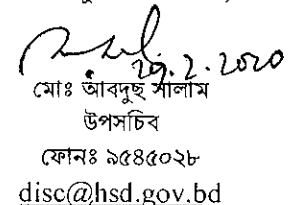 ২৭.2.2020
মোঃ আবদুছ সালাম
উপসচিব
ফোনঃ ৯৫৪৫০২৮
disc@hsd.gov.bd